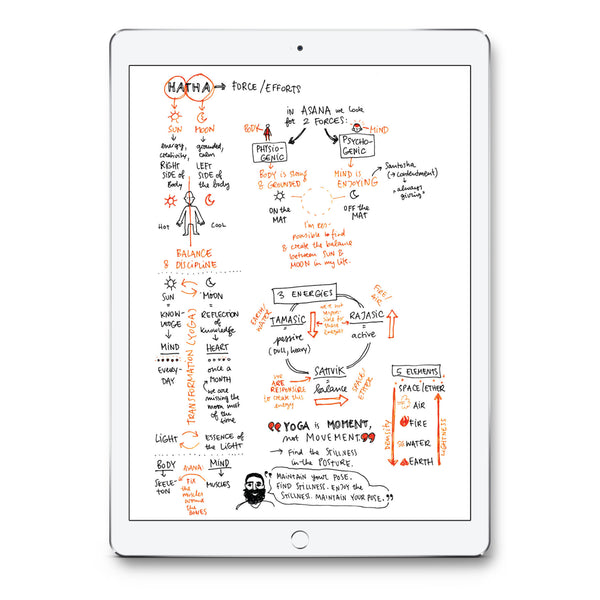 HATHA → FORCE/EFFORTS
SUN
↓
energy,
creativity,
RIGHT
SIDE of
Body
MOON
↓
grounded,
calm
LEFT
SIDE of
the body
HOT
COOL
BALANCE
& DISCIPLINE
in ASANA we look
for 2 FORCES:
BODY
PHYSIO-
GENIC
BODY is strong
& GROUNDED
ON the
MAT
MIND
PSYCHO-
GENIC
MIND is
ENJOYING
OFF the
MAT
Santosha
(→ contentment)
"always
giving"
I'm res-
ponsible to find
& create the balance
between SUN &
MOON in my life.
SUN
=
KNOW-
LEDGE
↓
MIND
EVERY-
DAY
MOON
=
REFLECTION
of
knowledge
↓
HEART
once a
MONTH
we are
missing the
moon most
of the
time
TRANSFORMATION (YOGA)
LIGHT
ESSENCE of
the LIGHT
BODY
↓
SKELE-
TON
MIND
↓
MUSCLES
ASANA:
FIX
the
MUSCLES
around
the
BONES
3 ENERGIES
EARTH/
WATER
TAMASIC
=
passive
(dull, heavy)
FIRE/
AIR
RAJASIC
=
active
we're not
respon-
sible for
these
energies
SATTVIK
=
balance
SPACE/
ETHER
we
ARE
RESPONSIBLE
to create this
energy
5 ELEMENTS
SPACE/ETHER
AIR
FIRE
WATER
EARTH
DENSITY
LIGHTNESS
"YOGA is MOMENT,
not MOVEMENT."
→ Find the STILLNESS
in the POSTURE.
"MAINTAIN your POSE.
FIND STILLNESS. ENJOY the
STILLNESS. MAINTAIN YOUR POSE."